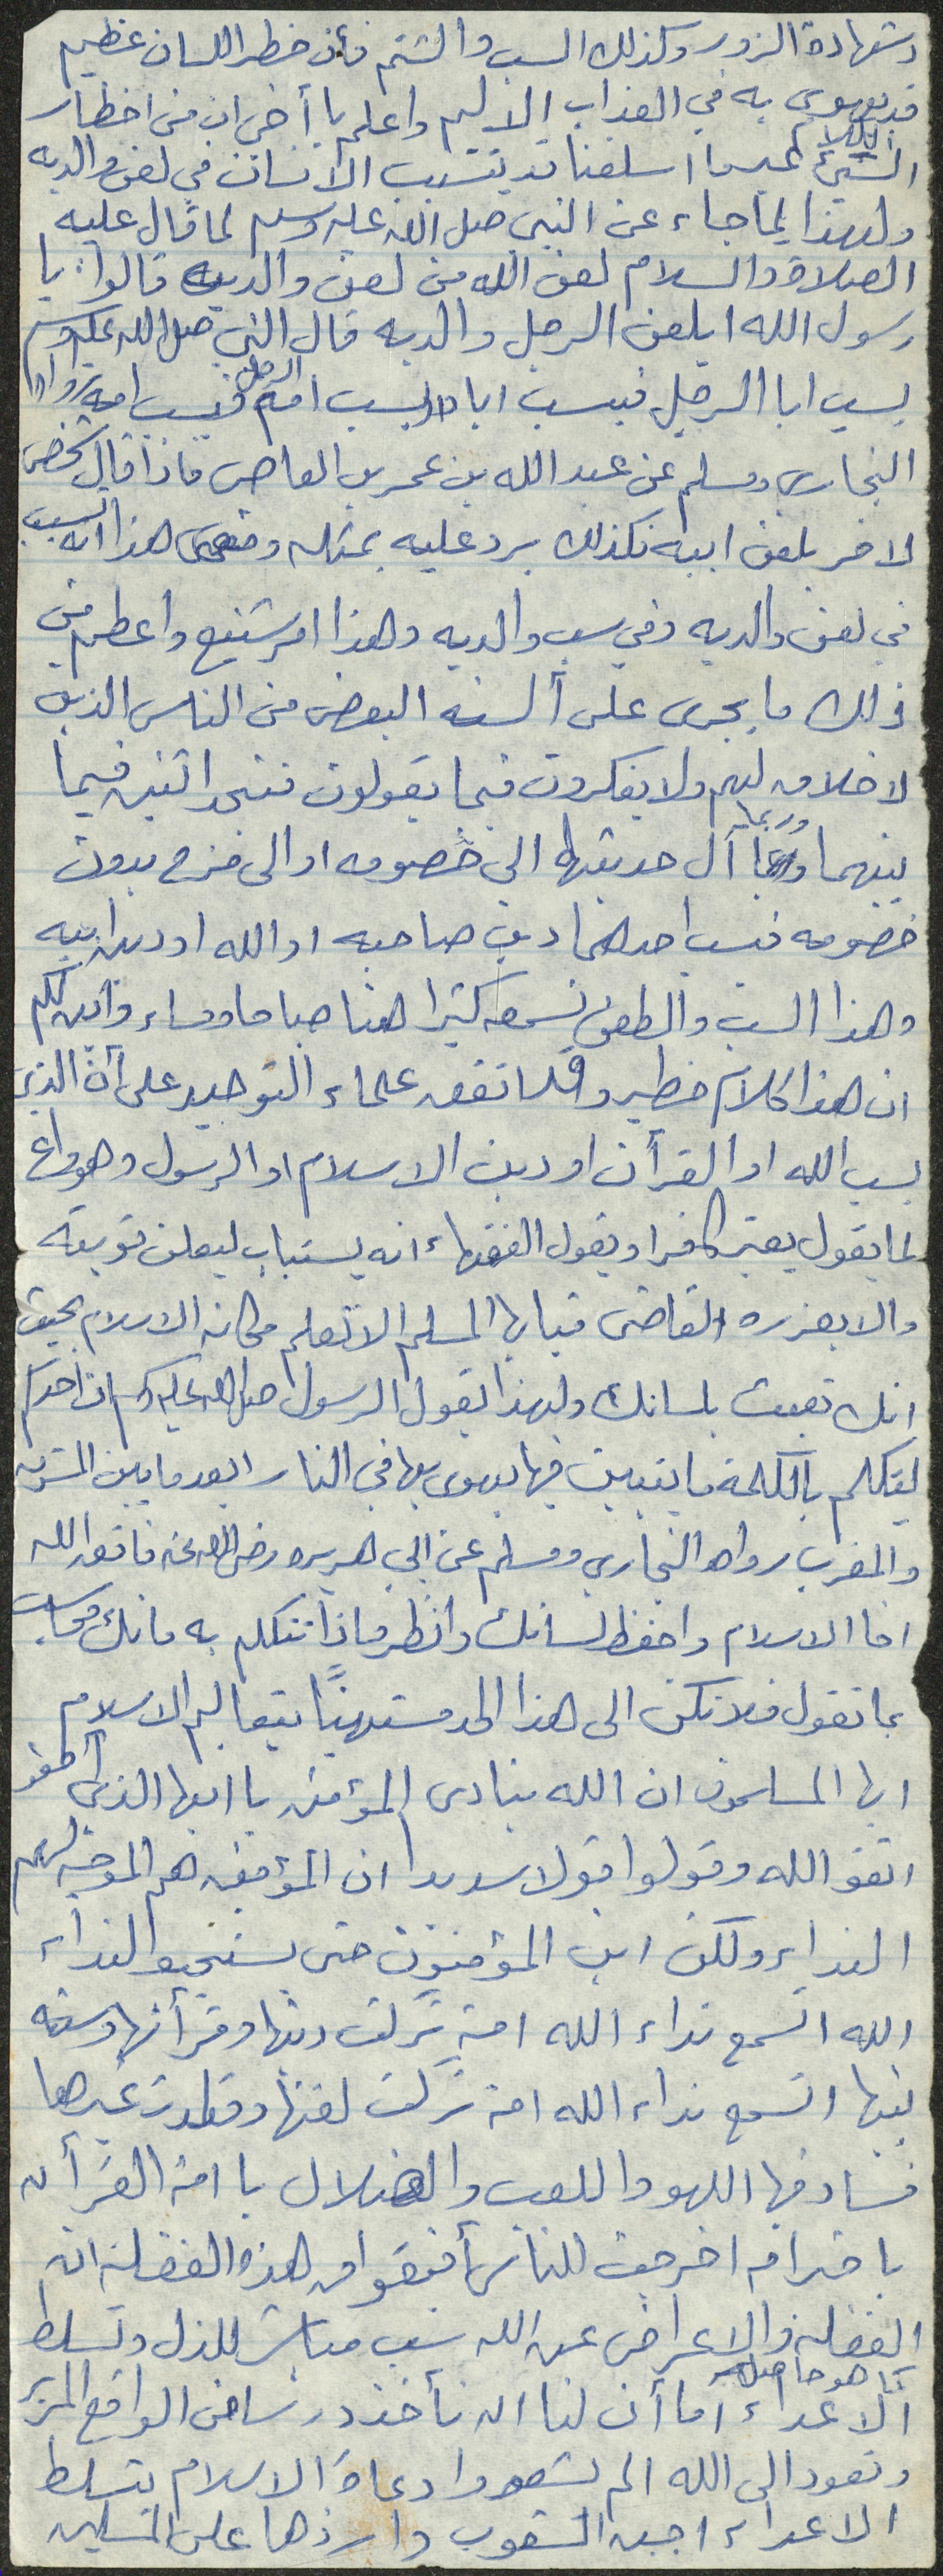 وشهادة الزور وكذلك السب والشتم فأن خطر اللسان عظيم
قد يهوي به في العذاب الاليم واعلم يا أخي ان من اخطار
الكلام
السيئ عدا ما اسلفنا قد يتسبب الانسان في لعن والديه
ولهذا لما جاء عن النبي صلى الله عليه وسلم لما قال عليه
الصلاة والسلام لعن الله من لعن والديه قالوا: يا
رسول الله ايلعن الرجل والديه قال النبي صلى الله عليه وسلم
الرجل
يسب ابا الرجل فيسب اباه ويسب امه فيسب امه رواه
البخاري ومسلم عن عبد الله بن عمر بن العاص فاذا قال شخص
لاخر يلعن ابيه فكذلك يرد عليه بمثله ومعنى هذا انه تسبب
في لعن والديه وفي سب والديه وهذا امر شنيع واعظم من
ذلك ما يجرى على ألسنه البعض من الناس الذين
لا خلاق لهم ولا يفكرون فيما يقولون فتجد اثنين فيما
وربما
بينهما آل حديثهما الى خصومه او الى مزح بدون
خصومه فيسب احدهما دين صاحبه او الله او دين ابيه
وهذا السب والطعن نسمعه كثيرا هنا صباحا ومساء واين لكم
ان هذا كلام خطير وقد اتفق علماء التوحيد على أن الذي
يسب الله او القرأن او دين الاسلام او الرسول وهو واع
لما يقول يعتبر كافرا ويقول الفقهاء انه يستتاب ليعلن توبته
والا يعزره القاضى فيا ايها المسلم الا تعلم مكانه الاسلام بحيث
انك تعبث بلسانك ولهذا يقول الرسول صلى الله عليه وسلم ان احدكم
ليتكلم بالكلمة ما يتبين فيها يهوى بها في النار ابعد ما بين المشرق
والمغرب رواه البخاري ومسلم عن ابي هريره رضي الله عنه فاتق الله
اخا الاسلام واحفظ لسانك وانظر ماذا تتكلم به فانك محاسب
بما تقول فلا تكن الى هذا الحد مستهينًا بتعاليم الاسلام
ايها المسلمون ان الله ينادى المؤمنين يا ايها الذين آمنو
اتقو الله وقولوا قولا سديدا ان المؤمنين هم الموجه لهم
النداء ولكن اين المؤمنون حتى يستجيبو النداء
الله اتسمع نداء الله امة تركت دينها وقرأنها وسنه
نبيها اتسمع نداء الله امة تركت لغتها وقلدت غيرها
فساد فيها اللهو واللعب والضلال يا امة القرأن
يا خير امة اخرجت للناس أفيقو من هذه الغفلة ان
الغفلة والاعراض عن الله سبب مباشر للذل وتسلط
كما هو حاصل
ألاعداء أما أن لنا ان نأخذ درسا من الواقع المرير
ونعود الى الله الم تشهدوا دعاة الاسلام تسلط
الاعداء اجبن الشعوب وارذلها على المسلمين